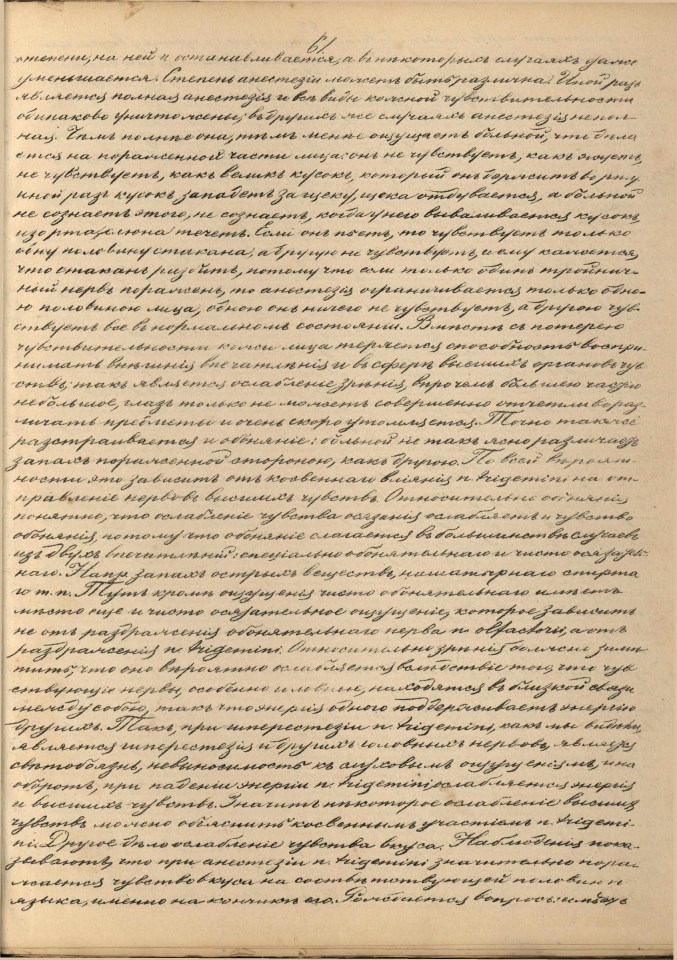 61
степени, на ней и останавливается, а въ нѣкоторыхъ случаяхъ даже
уменьшается. Степень анестезіи можетъ быть различна. Иной разъ
является полная анестезія и всѣ виды кожной чувствительности
одинаково уничтожены; въ другихъ же случаяхъ анестезія непол-
ная. Чѣмъ полнѣе она, тѣмъ менѣе ощущаетъ больной, что дѣла
ется на пораженной части лица: онъ не чувствуетъ, какъ жуетъ,
не чувствуетъ, какъ великъ кусокъ, который онъ держитъ во рту,
иной разъ кусокъ западетъ за щеку, щека отдувается, а больной
не сознаетъ этого, не сознаетъ, когда у него вываливается кусокъ
изо рта, слюна течетъ. Если онъ пьетъ, то чувствуетъ только
одну половину стакана, а другую не чувствуетъ и ему кажется,
что стаканъ разбитъ, потому что если только одинъ тройнич-
ный нервъ пораженъ, то анестезія ограничивается только одно-
ю половиною лица; одною онъ ничего не чувствуетъ, а другою чув-
ствуетъ все въ нормальномъ состояніи. Вмѣстѣ съ потерею
чувствительности кожи лица теряется способность воспри-
нимать внѣшнія впечатлѣнія и въ сферѣ высшихъ органовъ чув-
ствъ; такъ является ослабленіе зрѣнія, впрочемъ большею частію
небольшое, глазъ только не можетъ совершенно отчетливо раз-
личать предметы и очень скоро утомляется. Точно также
разстраивается и обоняніе: больной не такъ ясно различаетъ
запахъ пораженной стороною, какъ другою. По всей вѣроят-
ности это зависитъ отъ косвеннаго вліянія n. trigemini на от-
правленіе нервовъ высшихъ чувствъ. Относительно обонянія
понятно, что ослабленіе чувства осязанія ослабляетъ и чувство
обонянія, потому что обоняніе слагается въ большинствѣ случаевъ
изъ двухъ впечатлѣній: спеціально обонятельнаго и чисто осязатель-
наго. Напр. запахъ острыхъ веществъ, нашатырнаго спирта
и т. п. Тутъ кромѣ ощущенія чисто обонятельнаго имѣетъ
мѣсто еще и чисто осязательное ощущеніе, которое зависитъ
не отъ раздраженія обонятельнаго нерва n. olfactorii, а отъ
раздраженія n. trigemini. Относительно зрѣнія должно замѣ
тить, что оно вѣроятно ослабляется вслѣдствіе того, что чув
ствующіе нервы, особенно головные, находятся въ близкой связи
между собою, такъ что энергія одного поддерживаетъ энергію
другихъ. Такъ, при гиперестезіи n. trigemini, какъ мы видѣли,
является гиперестезія и другихъ головныхъ нервовъ, является
свѣтобоязнь, невыносимость къ слуховымъ ощущеніямъ, и на
оборотъ, при паденіи энергіи n. trigemini ослабляется энергія
и высшихъ чувствъ. Значитъ нѣкоторое ослабленіе высшихъ
чувствъ можно объяснить косвеннымъ участіемъ n. trigemi-
ni. Другое дѣло ослабленіе чувства вкуса. Наблюденія пока-
зываютъ, что при анестезіи n. trigemini значительно пора-
жается чувство вкуса на соотвѣтствующей половинѣ
языка, именно на кончикѣ его. вопросъ: имѣетъ